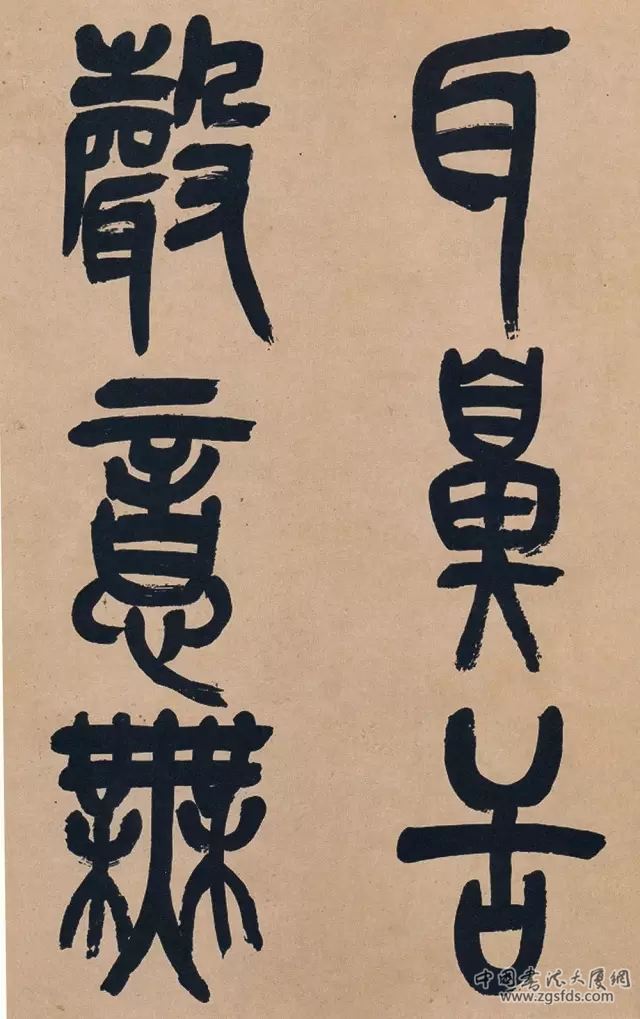 耳鼻舌
聲意無
中国书法大厦网
www.zgsfds.com